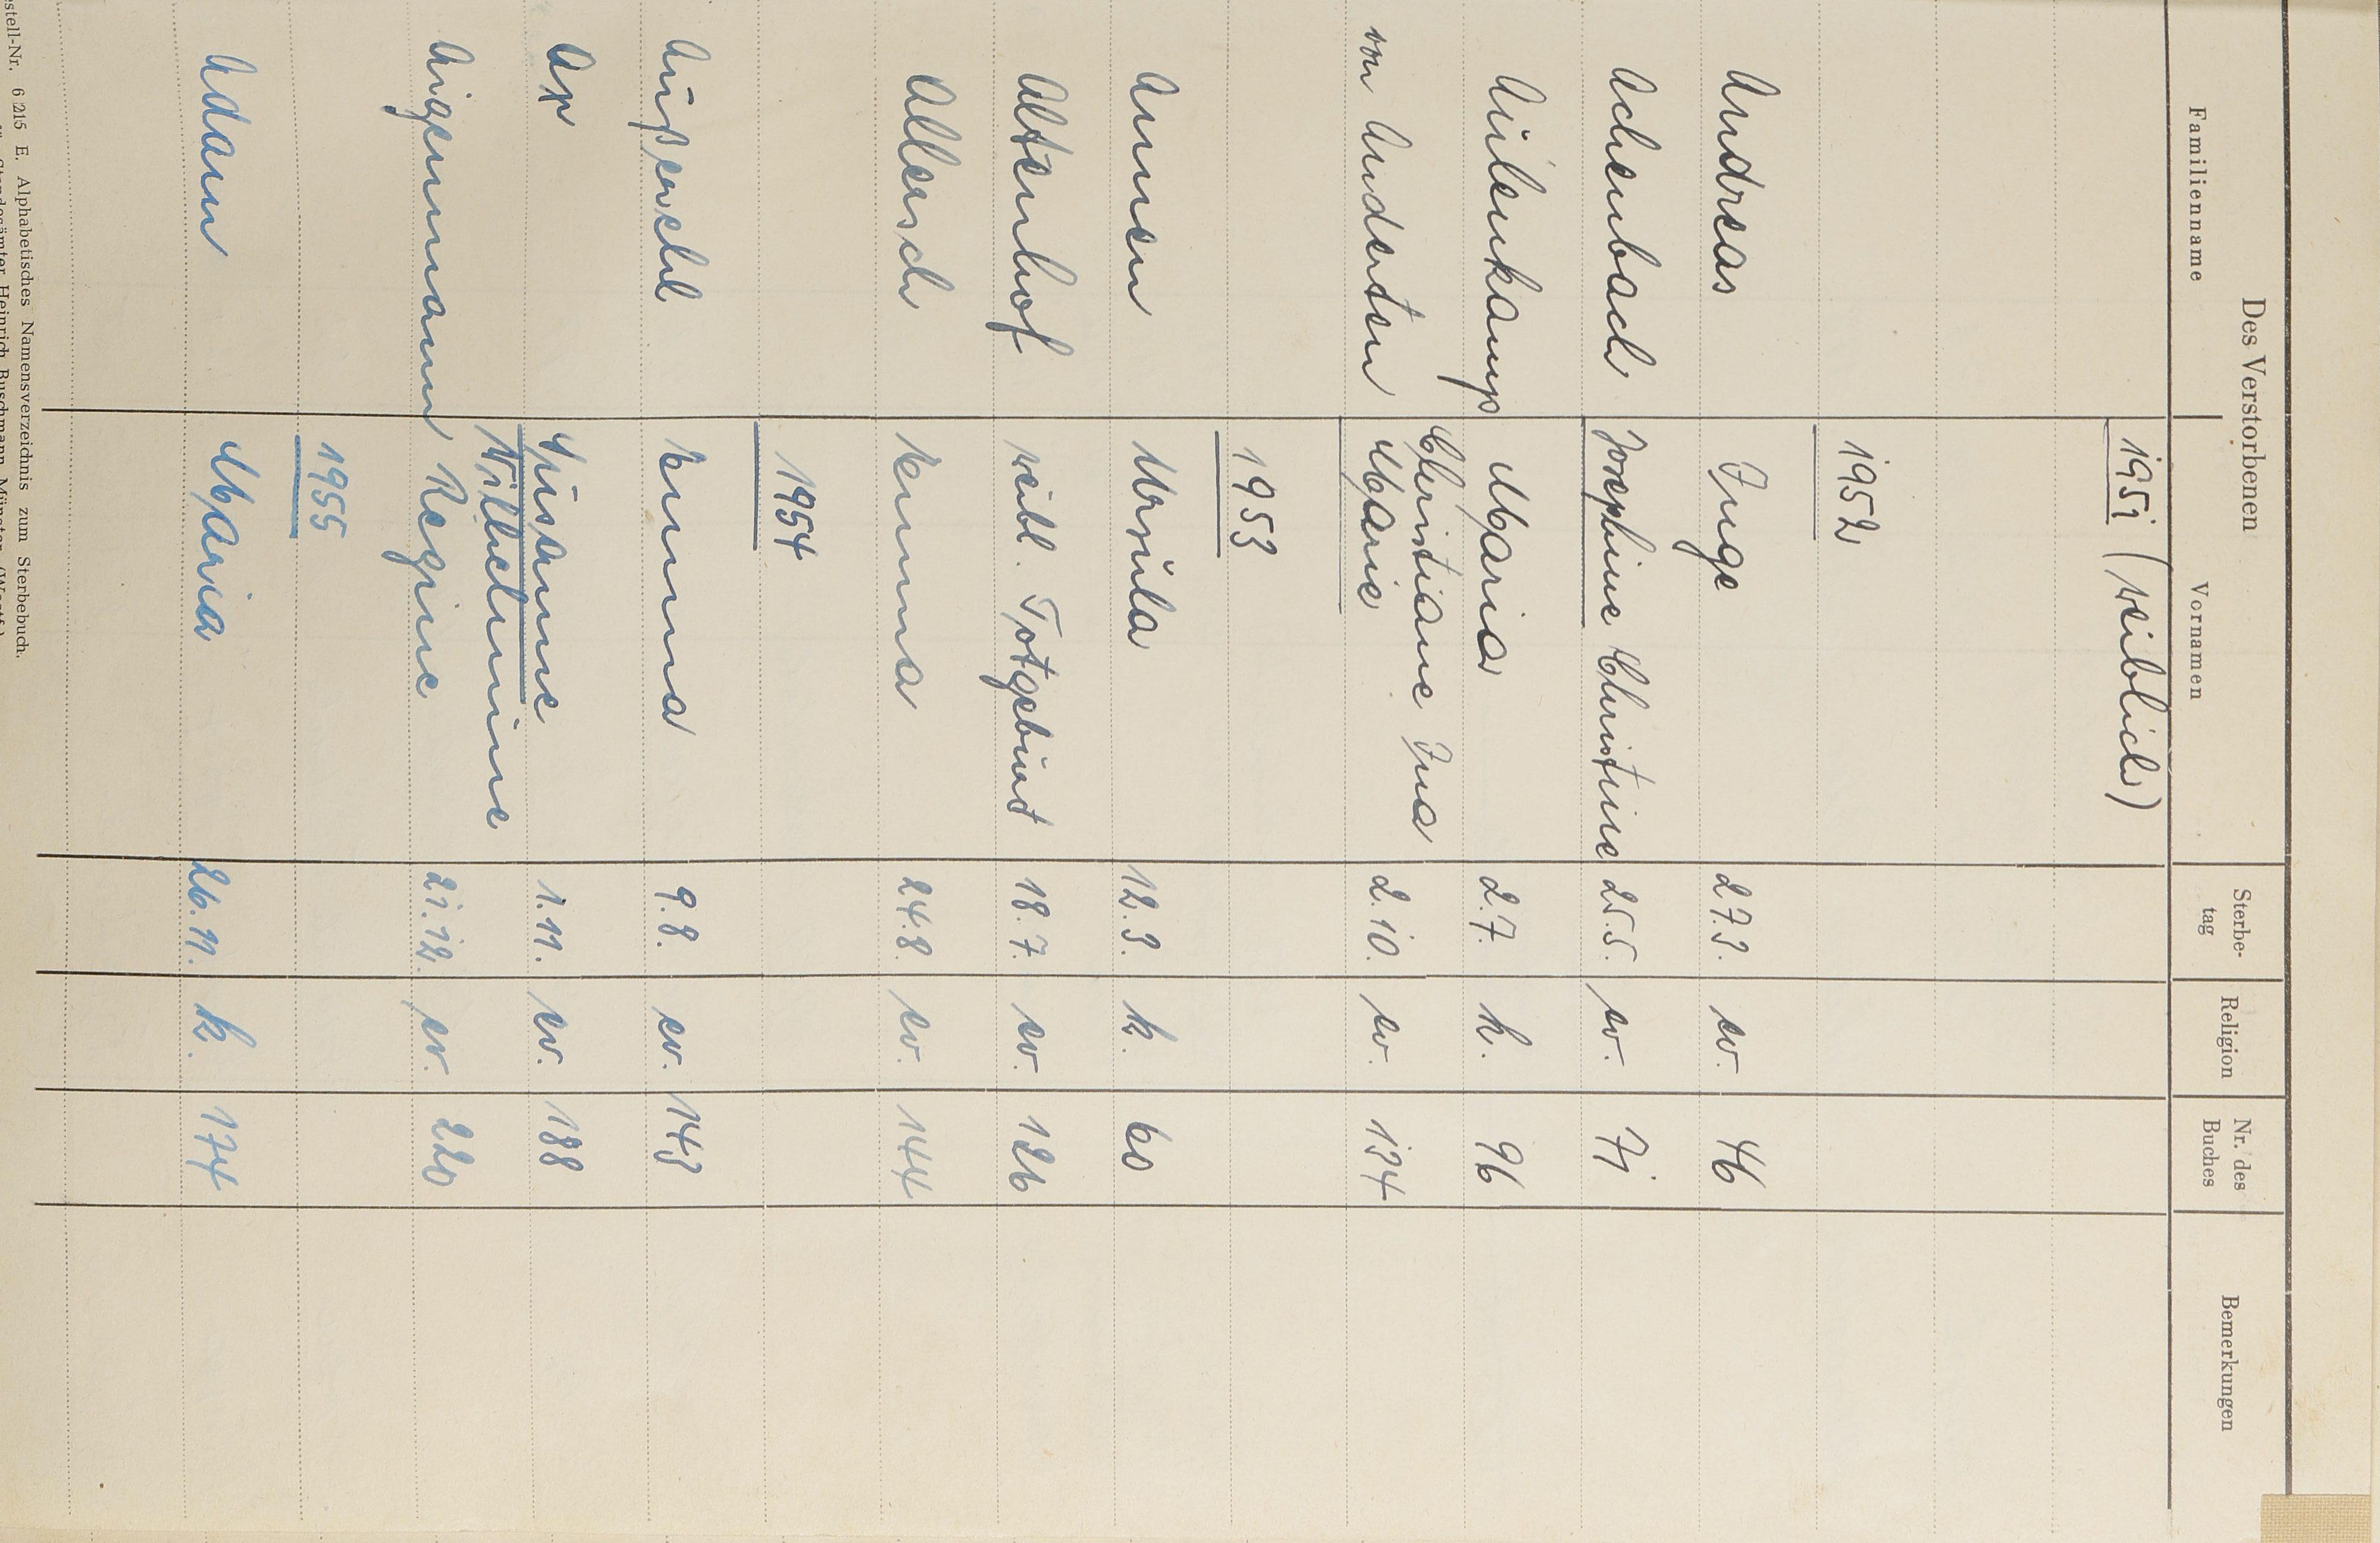 Des Verstorbenen
Familienname Vornamen Sterbe- tag Religion Nr. des Buches Bemerkungen
1951 (weiblich)
1952
Andreas Inge 27.3. ev. 46
Achenbach Josephine Christine 25.5. ev. 71
Aülenkamp Maria 2.7. k. 96
Christiane Ina
von Anderten Marie 2.10. ev. 134
1953
Annen Ursula 12.3. k. 60
Altenhof weibl. Totgeburt 18.7. ev. 126
Allersch Emma 24.8. ev. 144
1954
Emma 9.8. ev. 143
Susanne 1.11. ev. 188
Wilhelmine
Aigenmann Regine 21.12. ev. 220
1955
Adam Maria 26.11. k. 174
stell-Nr. 6 215 E. Alphabetisches Namensverzeichnis zum Sterbebuch.
Heinrich Buschmann, Münster (Westf.)